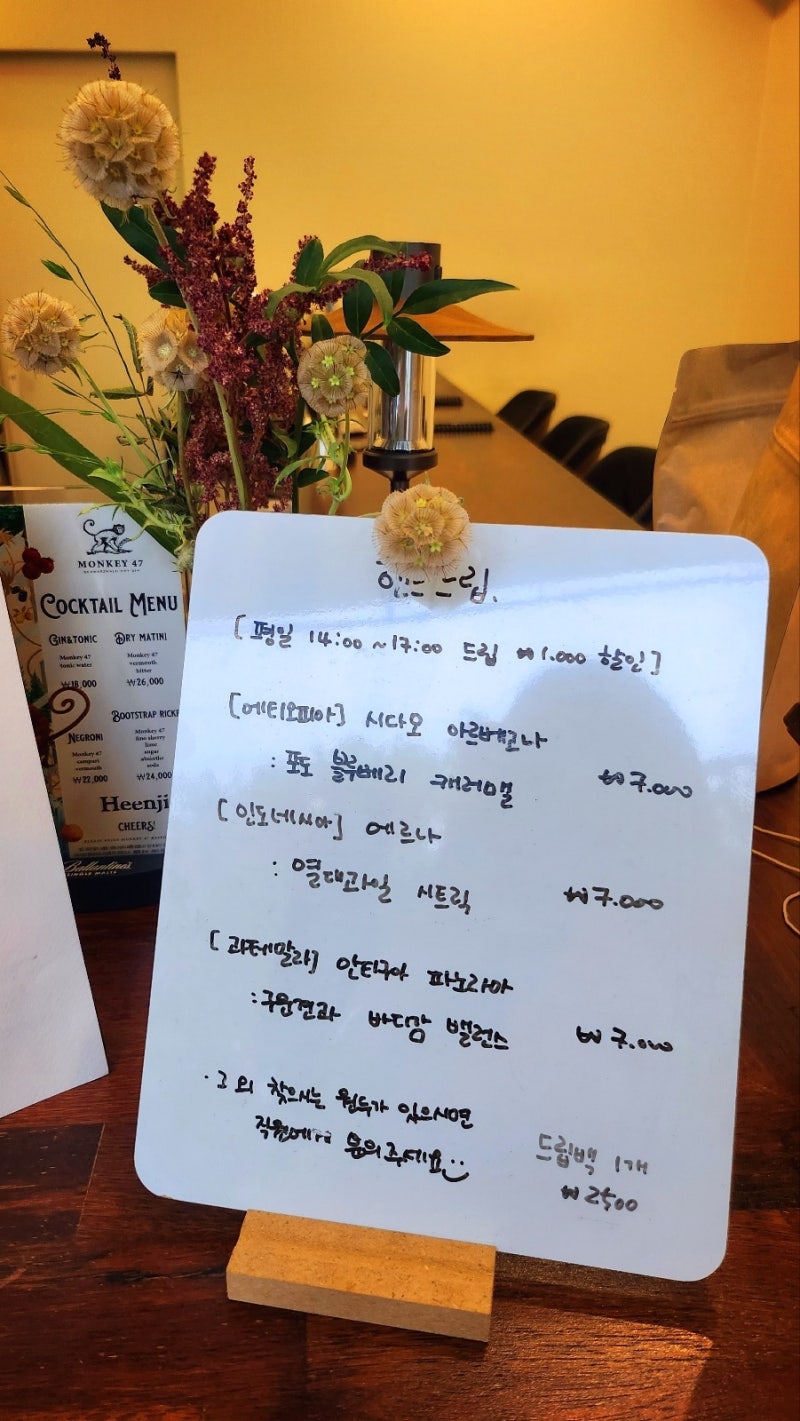 핸드드립.
[평일 14:00 ~17:00 드립 ₩1.000 할인]
[에티오피아] 시다모 아르베고나
: 포도 블루베리 캐러멜 ₩7.000
[인도네시아] 에르나
: 열대과일 시트릭 ₩7.000
[과테말라] 안티구아 파노라마
:구운견과 바디감 밸런스 ₩7.000
·그 외 찾으시는 원두가 있으시면
직원에게 문의주세요
드립백 1개
₩2500
MONKEY 47
COCKTAIL MENU
GIN&TONIC
Monkey 47
tonic water
₩18,000
DRY MATINI
Monkey 47
vermouth
bitter
₩26,000
NEGRONI
Monkey 47
campari
vermouth
₩22,000
BOOTSTRAP RICK
Monkey 47
fino sherry
lime
sugar
absinthe
soda
₩24,000
Heenji
CHEERS!
Ballantine's
SINGLE MALTS